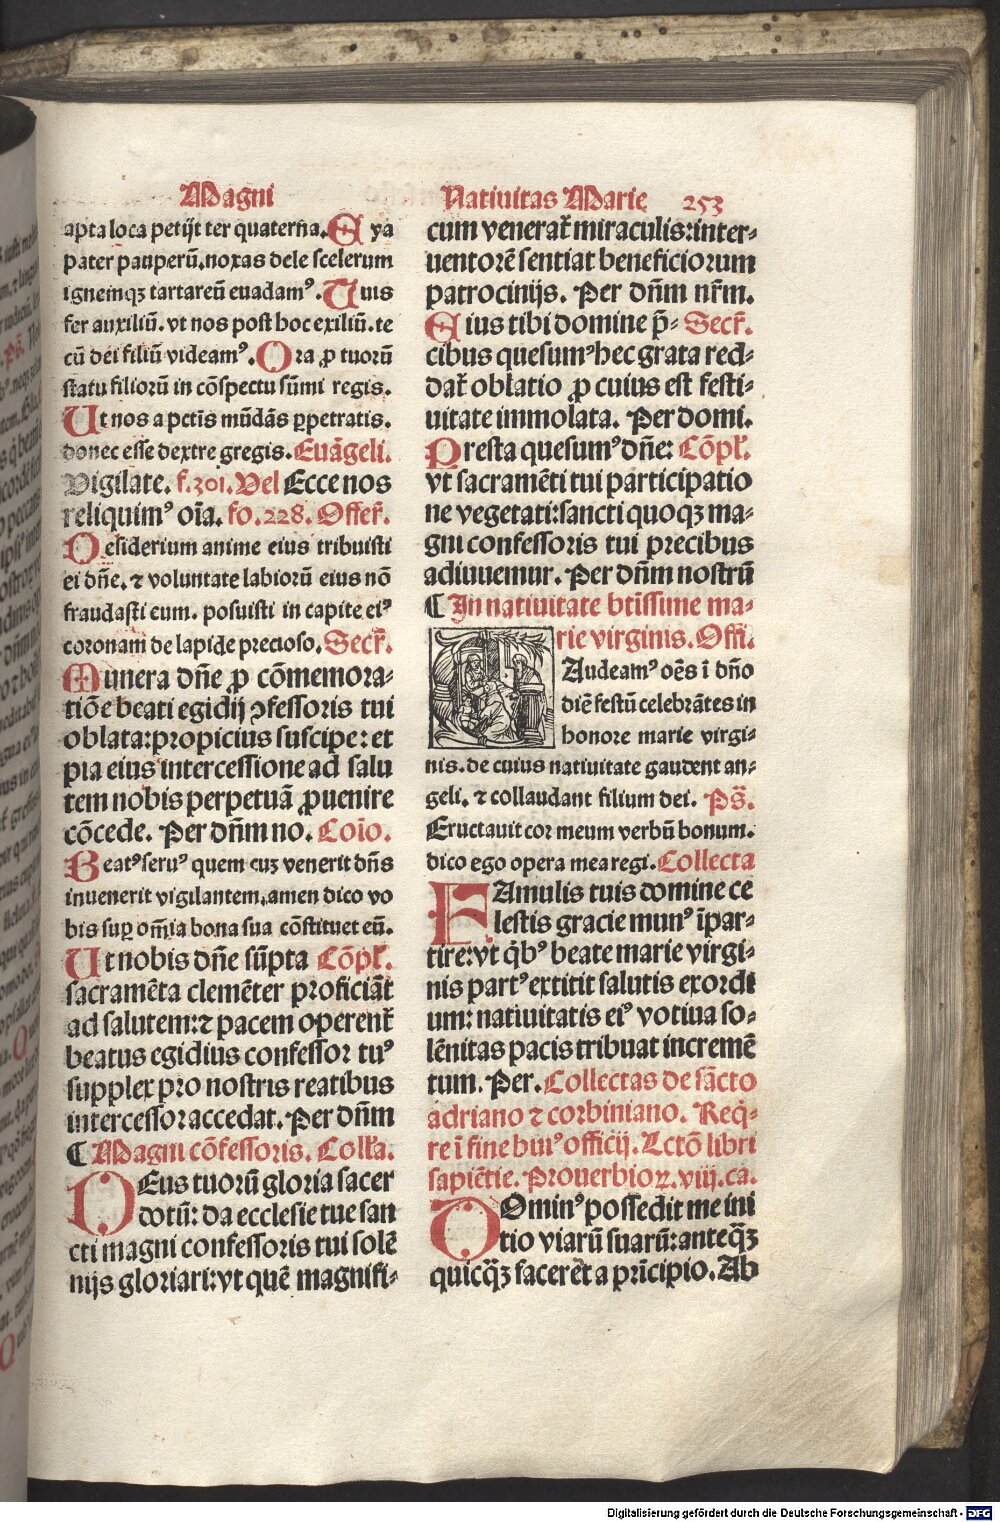 Magni
apta loca petijt ter quaterna. Eya
pater pauperū. noxas dele scelerum
ignemqꝫ tartareū euadamꝰ. Uuis
fer auxiliū. vt nos post hoc exiliū. te
cū dei filiū videamꝰ. Ora ꝓ tuorū
statu filiorū in cōspectu sūmi regis.
Ut nos a pctīs mūdās ꝑpetratis.
donec esse dextre gregis. Euāgeli.
Vigilate. f.301. Vel Ecce nos
reliquimꝰ oīa. fo.228. Offer̄.
Desiderium anime eius tribuisti
ei dn̄e. ⁊ voluntate labiorū eius nō
fraudasti eum. posuisti in capite eiꝰ
coronam de lapide precioso. Secr̄.
Munera dn̄e ꝓ cōmemora⸗
tiōe beati egidij ꝯfessoris tui
oblata: propicius suscipe: et
pia eius intercessione ad salu
tem nobis perpetuā ꝓuenire
cōcede. Per dn̄m no. Coīo.
Beatꝰ seruꝰ quem cuꝫ venerit dn̄s
inuenerit vigilantem, amen dico vo
bis suꝑ om̄ia bona sua cōstituet eū.
Ut nobis dn̄e sūpta Cōpl̄.
sacramēta clemēter proficiāt
ad salutem: ⁊ pacem operent᷑
beatus egidius confessor tuꝰ
supplex pro nostris reatibus
intercessor accedat. Per dn̄m
¶ Magni cōfessoris. Coll̄a.
DEus tuorū gloria sacer
dotū: da ecclesie tue san
cti magni confessoris tui solē
nijs gloriari: vt quē magnifi⸗
Natiuitas Marie 253
cum venerat᷑ miraculis: inter⸗
uentorē sentiat beneficiorum
patrocinijs. Per dn̄m nr̄m.
Eius tibi domine p̄⸗ Secr̄.
cibus quesumꝰ hec grata red⸗
dat᷑ oblatio ꝓ cuius est festi⸗
uitate immolata. Per domi.
Presta quesumꝰ dn̄e: Cōpl̄.
vt sacramēti tui participatio
ne vegetati: sancti quoqꝫ ma⸗
gni confessoris tui precibus
adiuuemur. Per dn̄m nostrū
¶ In natiuitate btīssime ma⸗
rie virginis. Offi.
Audeamꝰ oēs ī dn̄o
diē festū celebrātes in
honore marie virgi⸗
nis. de cuius natiuitate gaudent an⸗
geli. ⁊ collaudant filium dei. Ps̄.
Eructauit cor meum verbū bonum.
dico ego opera mea regi. Collecta
FAmulis tuis domine ce
lestis gracie munꝰ īpar⸗
tire: vt q̄bꝰ beate marie virgi⸗
nis partꝰ extitit salutis exordi
um: natiuitatis eiꝰ votiua so⸗
lēnitas pacis tribuat incremē
tum. Per. Collectas de sācto
adriano ⁊ corbiniano. Req̄⸗
re ī fine huiꝰ officij. Lctō libri
sapiētie. Prouerbioꝝ. viij. ca.
DOminꝰ possedit me ini
tio viarū suarū: anteq̄ꝫ
quicq̄ꝫ facerēt a prīcipio. Ab
Digitalisierung gefördert durch die Deutsche Forschungsgemeinschaft - DFG